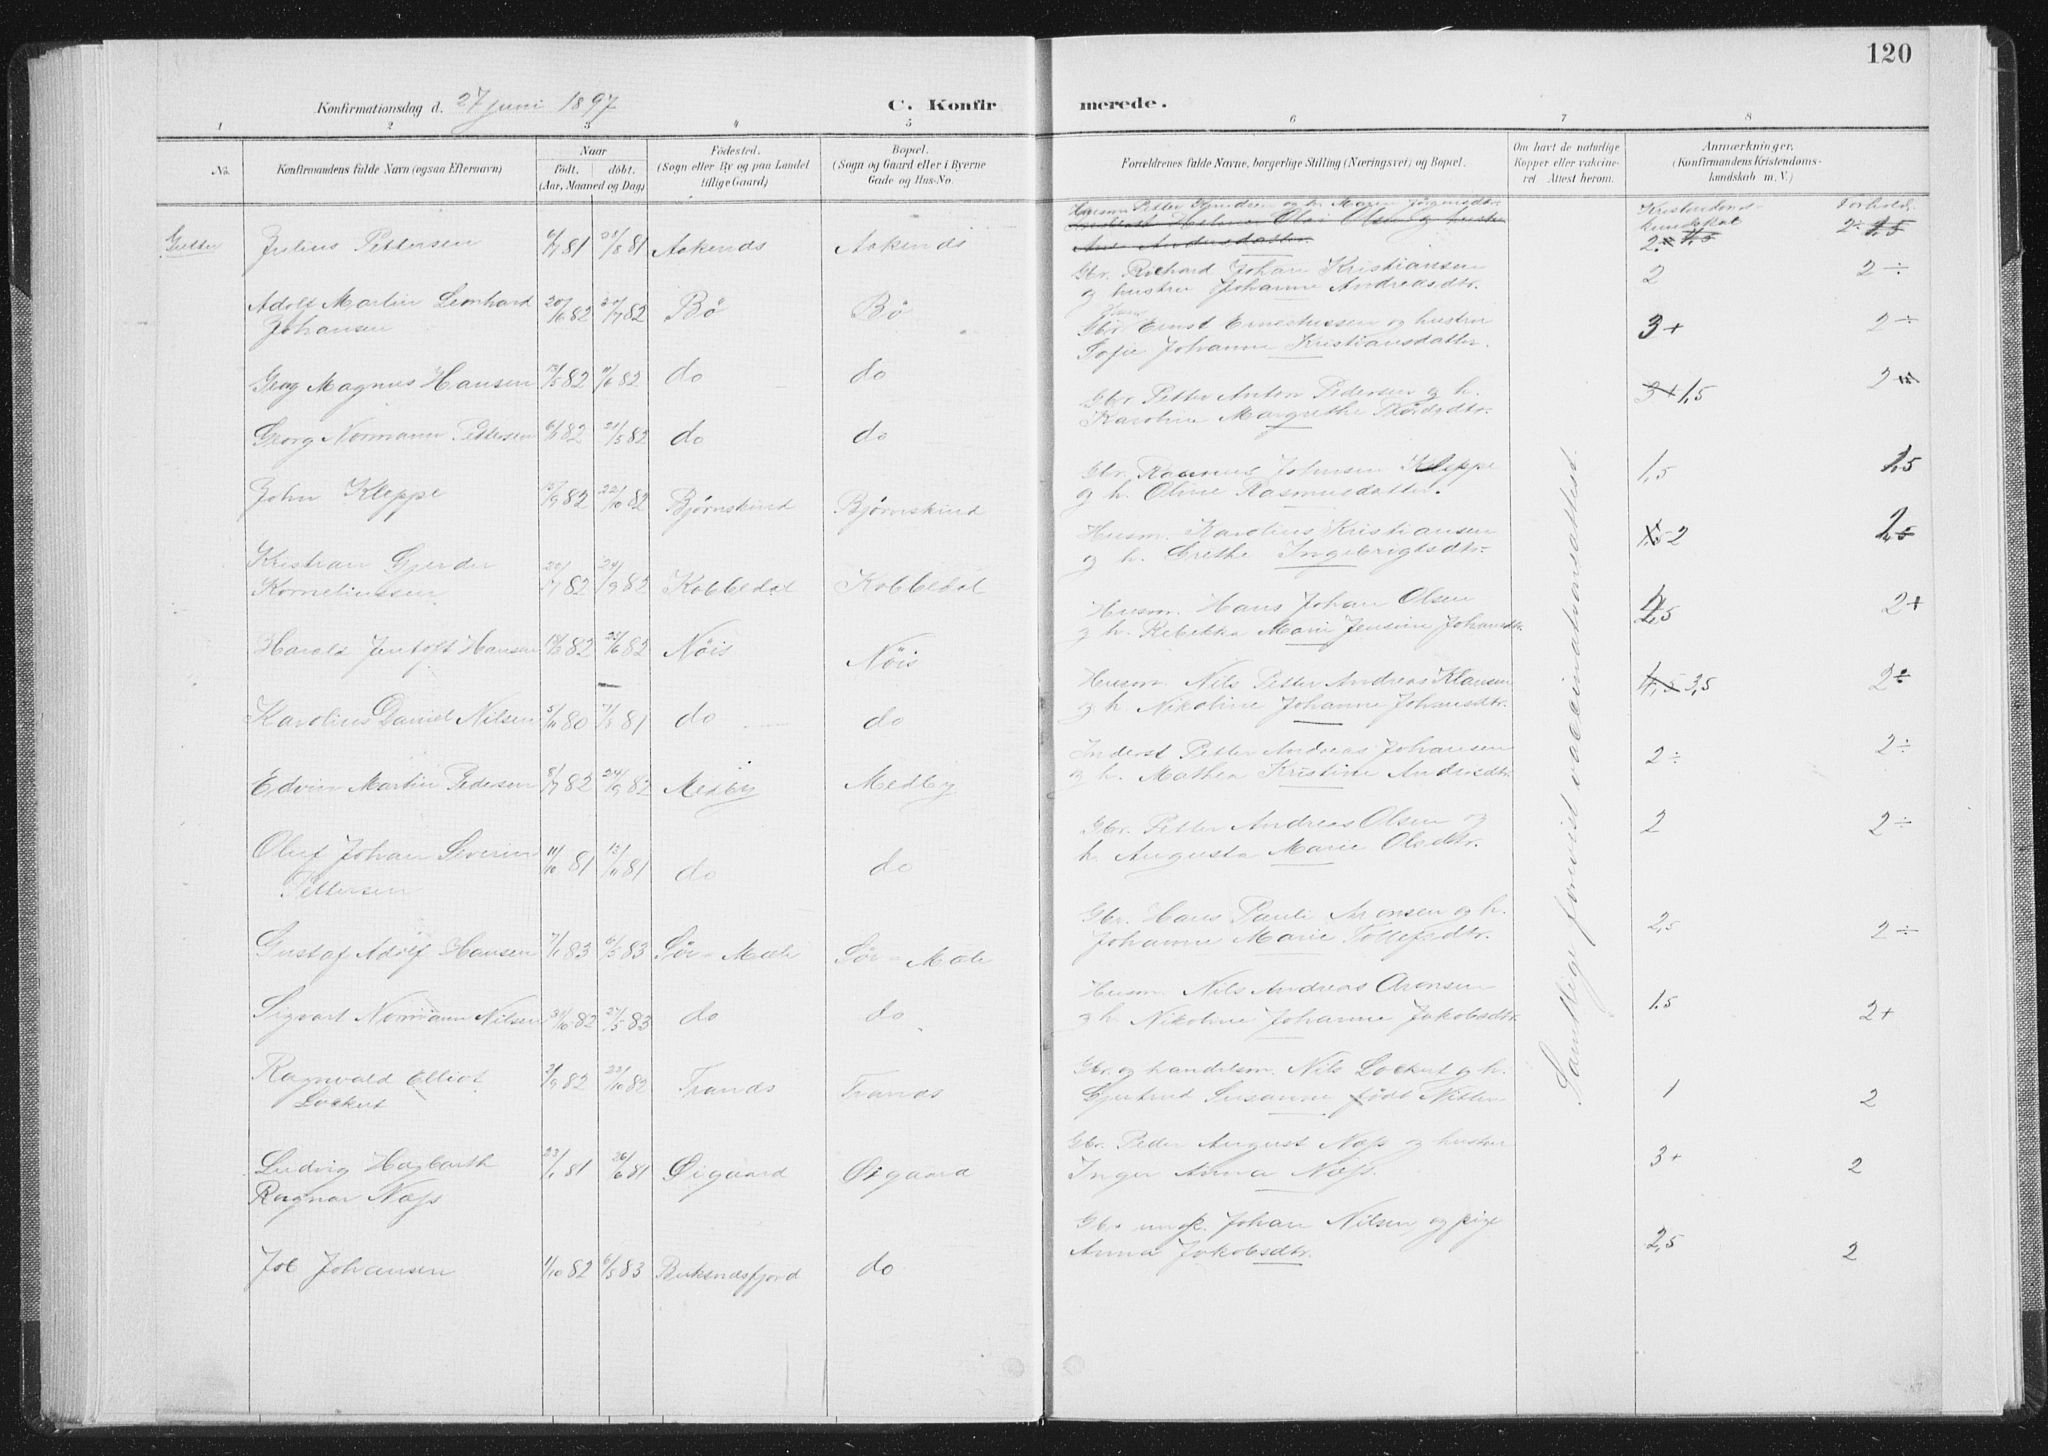 120
Konfirmationsdag d. 27 juni 1897
C. Konfirmerede.
1 2 3 4 5 6 7 8
No.
Konfirmandens fulde Navn (ogsaa Efternavn)
Naar
født. døbt.
(Aar, Maaned og Dag)
Fødested.
(Sogn eller By og paa Landet
tillige Gaard)
Bopæl.
(Sogn og Gaard eller i Byerne
Gade og Hus-No.
Forældrenes fulde Navne, borgerlige Stilling (Næringsvei) og Bopæl.
Om havt de naturlige
Kopper eller vaksine-
ret Attest herom.
Anmærkninger.
(Konfirmandens Kristendoms-
kundskab m. V.)
Kristendoms- Forhold.
kundskab
Gutter
Julius Pettersen 81 81 Aakenes Aakenes
Husm. Petter og h. Maren
2 1,5 2 1,5
Adolf Martin Leonhard
Johansen 20/6 82 82 Bø Bø
Gbr. Richard Johan Kristiansen
og hustru Johanne Andreasdtr.
2 2÷
Georg Magnus Hansen 82 82 do do
Gbr. Ernst Ernestussen og hustru
Sofie Johanne Kristiansdatter.
3+ 2÷
Georg Normann Pettersen 82 21/5 82 do do
Gbr. Petter Anton Pedersen og h.
Karoline Margrethe
3+ 1,5 2
John Kleppe 82 22/10 82 Bjørnskind Bjørnskind
Gbr. Rasmus Johnsen Kleppe
og h. Oline Rasmusdatter.
1,5 1,5
Kristian Gjerder
Korneliussen 82 24/9 82 Kobbedal Kobbedal
Husm. Karolius Kristiansen
og h. Grethe Ingebrigtsdtr.
2
Harald Jentoft Hansen 82 25/6 82 Nöis Nöis
Husm. Hans Johan Olsen
og h. Rebekka Marie Jensine Johansdtr.
2+
Karolius Daniel Nilsen 80 81 do do
Husm. Nils Petter Andreas Klausen
og h. Nikoline Johanne Johansdtr.
4,5 3,5 2÷
Edvin Martin Pedersen 8/7 82 24/9 82 Medby Medby
Inderst Petter Andreas Johansen
og h. Mathea Kristine Andersdtr.
2÷ 2÷
Oluf Johan Severin
Pettersen 11/10 81 13/11 81 do do
Gbr. Petter Andreas Olsen og
h. Augusta Marie Olsdtr.
2 2÷
Gustaf Adolf Hansen 7/1 83 6/5 83 Sör-Mæle Sör-Mæle
Gbr. Hans Pauli Aronsen og h.
Johanne Marie Tollefsdtr.
2,5 2÷
Sigvart Normann Nilsen 82 27/5 83 do do
Husm. Nils Andreas Aronsen
og h. Nikoline Johanne Jakobsdtr.
1,5 2+
Ragnvald Elliot
Lockert 2/9 82 22/10 82 Tranøs Tranøs
Gbr. og handelsm. Nils Lockert og h.
Gjertrud Susanne født
1 2
Ludvig Hagbarth
Ragnar Næss 23/1 81 26/6 81 Øigaard Øigaard
Gbr. Peder August Næss og hustru
Inger Anna Næss.
3+ 2
Job Johansen 1/10 82 6/5 83 Buksnesfjord do
Gbr. ungk. Johan Nilsen og pige
Anna Jakobsdtr.
2,5 2
Samtlige forevist vaccinationsattest.